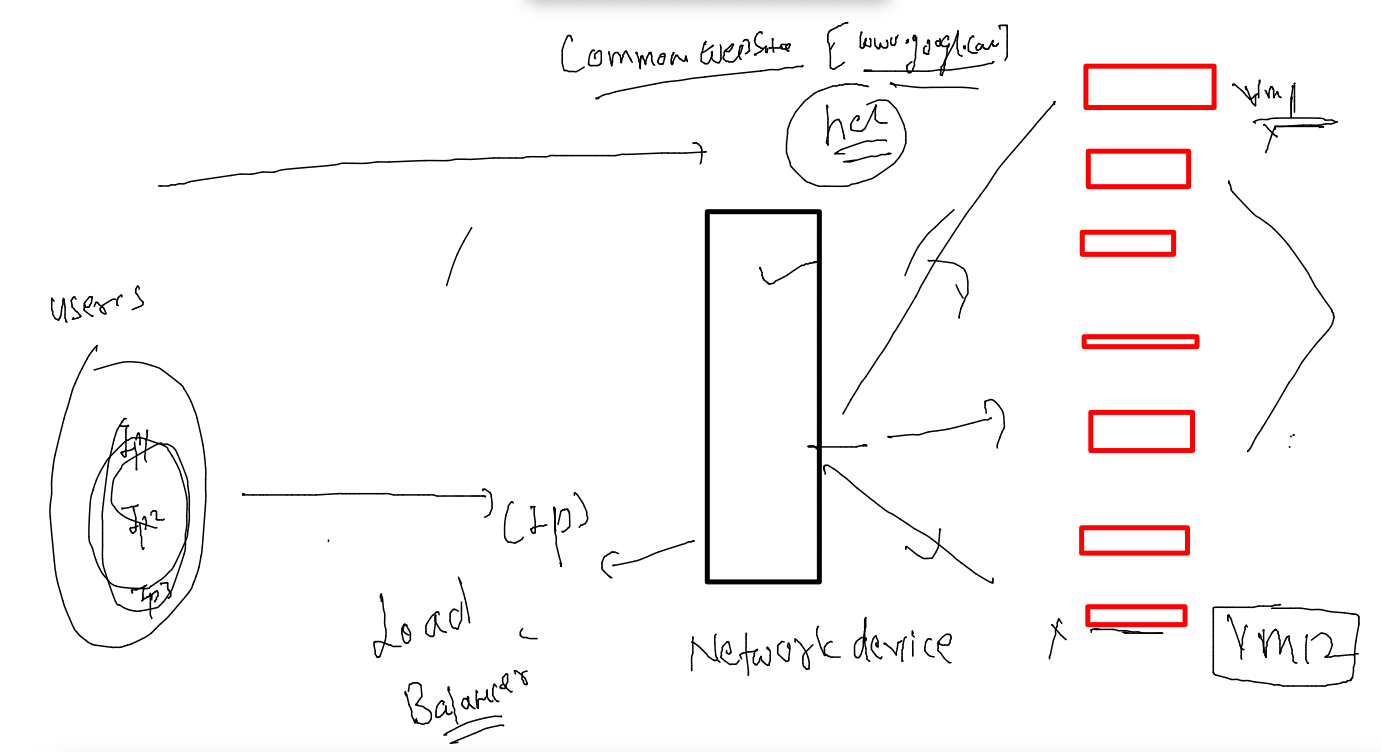 Common website [www.googl.com]
hcl
Vm1
users
Ip1
Ip2
Ip3
(Ip)
Load
Balancer
Network device
Vm12